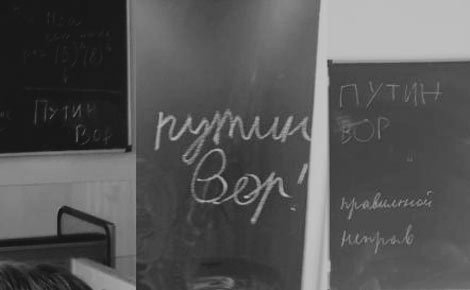 ПУТИН
ВОР
путин
вор!
ПУТИН
ВОР
правильной
неправ